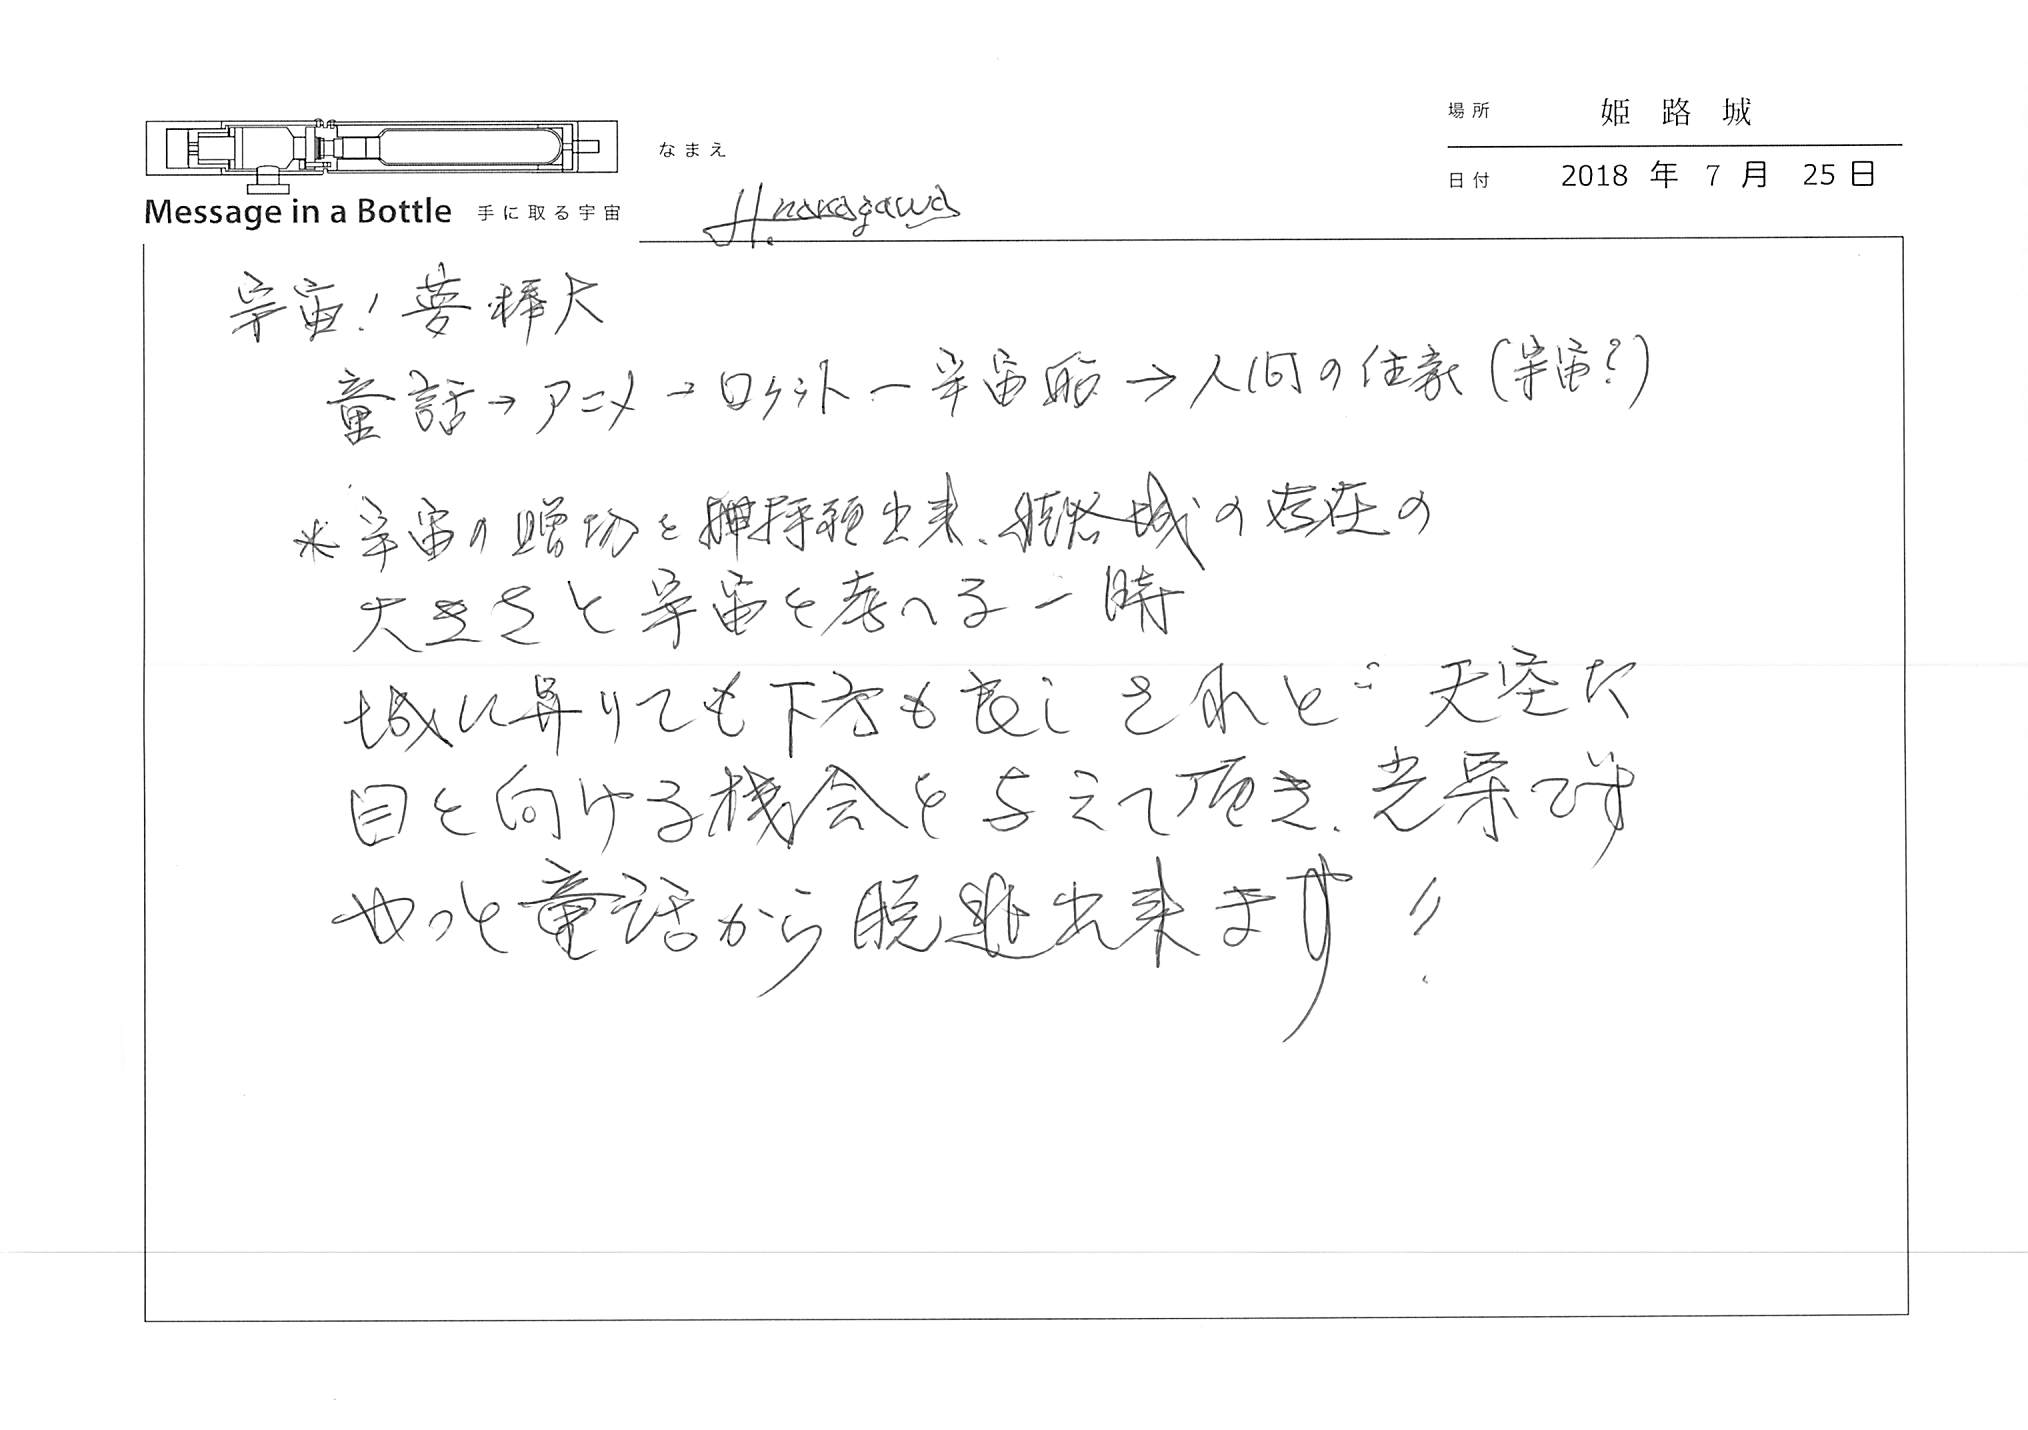 場所 姫路城
なまえ
日付 2018 年 7 月 25 日
Message in a Bottle 手に取る宇宙
H.nakagawa
宇宙！夢棒大
童話→アニメ→ロケット→宇宙船→人間の住家（宇宙？）
※宇宙の贈物を 出来、姫路城の存在の
大きさと宇宙を考へる一時
城に昇りても下方も良し されど 天空に
目を向ける機会を与えて頂き、光栄です
やっと童話から脱逃出来ます!!